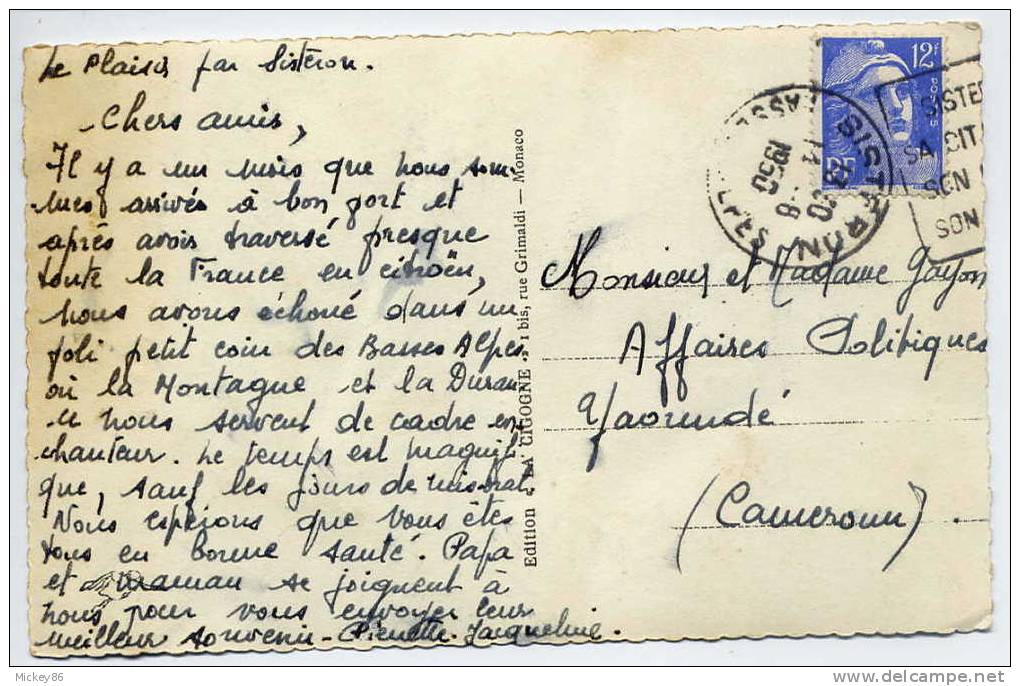 Le Plaisir par Sisteron.
Chers amis,
Il y a un mois que nous som-
mes arrivés à bon port et
après avoir traversé presque
toute la France en citroën,
nous avons échoué dans un
joli petit coin des Basses Alpes
où la Montagne et la Duran-
ce nous servent de cadre en-
chanteur. Le temps est magnifi-
que, sauf les jours de mistral.
Nous espérons que vous êtes
tous en bonne santé. Papa
et maman se joignent à
nous pour vous envoyer leur
meilleur souvenir - Pierrette - Jacqueline.
Edition " LA CIGOGNE ", 1 bis, rue Grimaldi — Monaco
12F
POSTES
RF
SISTERON
BASSES ALPES
1950
SISTE
SA CIT
SON
SON
Monsieur et Madame
Affaires Politiques
Yaoundé
(Cameroun).
Mickey86
www.delcampe.net